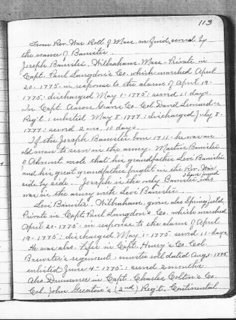 113
From Rev. War Rolls of Mass. in Guild, served by
the name of Banister.
Joseph Banister, Wilbraham, Mass. Private in
Capt. Paul Langdon's Co. which marched April
20, 1775, in response to the alarm of April 19,
1775; discharged May 1, 1775; served 11 days
in Capt. Co. Col. David
Reg't.; enlisted May 8, 1777; discharged July 8,
1777; served 2 mo. 10 days.
If the Joseph Banister born 1711, he was an
old man to serve in the army. Martin Banister
of said that his grandfather Levi Banister
and his great grandfather fought in the Rev. War
side by side. Joseph is the only Banister
was in the army with Levi Banister.
Levi Banister, Wilbraham, given also Springfield,
Private in Capt. Paul Langdon's Co. which marched
April 20, 1775, in response to the alarm of April
19, 1775; discharged May 1, 1775; served 11 days
He was also Fifer in Capt. Co. Col.
Brewer's regiment; muster roll dated Aug. 1775
enlisted June 4, 1775; served 2 months
Also Drummer in Capt. Charles Colton's Co.
Col. John Greaton's (2nd) Reg't. Continental